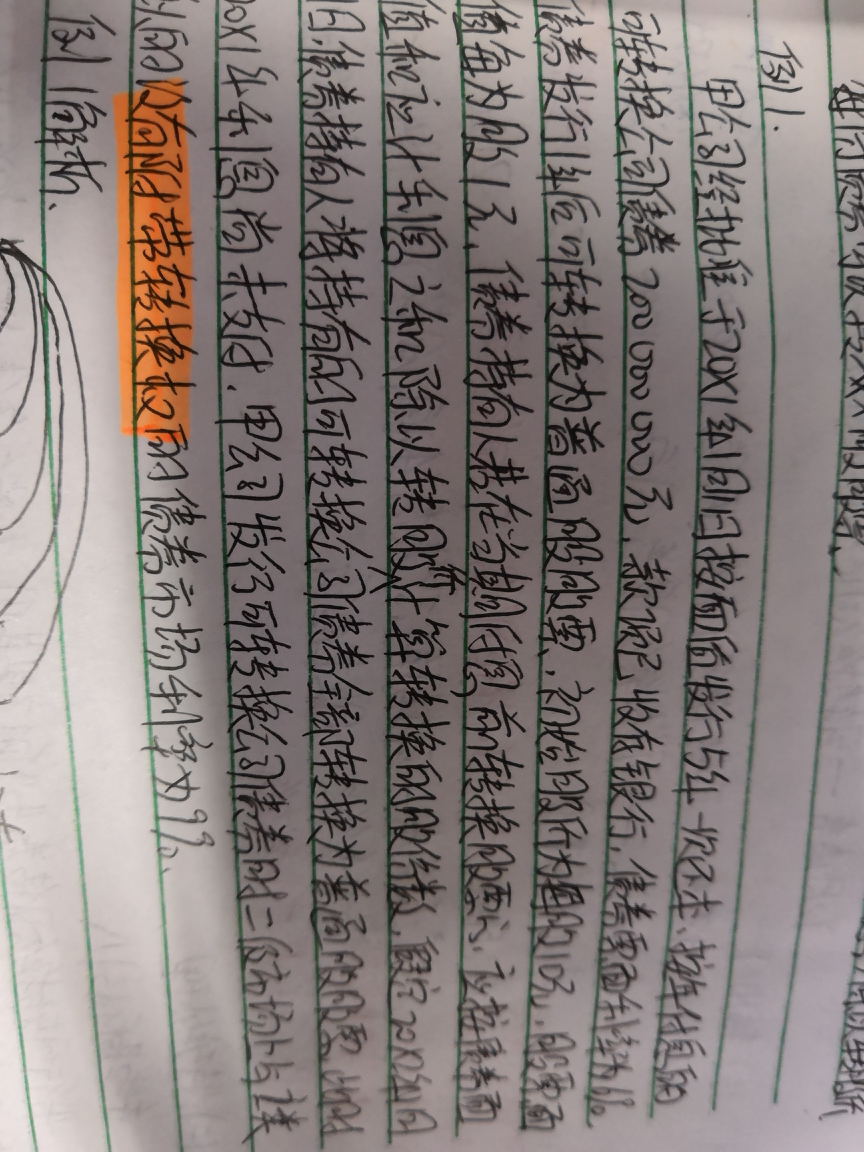 例1.
甲公司经批准于20X1年1月1日按面值发行5年一次还本、按年付息的
可转换公司债券200 000 000元,款项已收存银行,债券票面利率为6%.
债券发行1年后可转换为普通股股票、初始转股价为每股10元,股票面
值每为股1元,债券持有人若在当期付息前转换股票的、应按债券面
值和应计利息之和除以转股价计算转换的股份数,假定20X2年1月
日,债券持有人将持有的可转换公司债券全部转换为普通股股票,此时
20X1年利息尚未支付.甲公司发行可转换公司债券时二级市场上与之类
似的没有附带转换权的债券市场利率为9%.
例1解析、